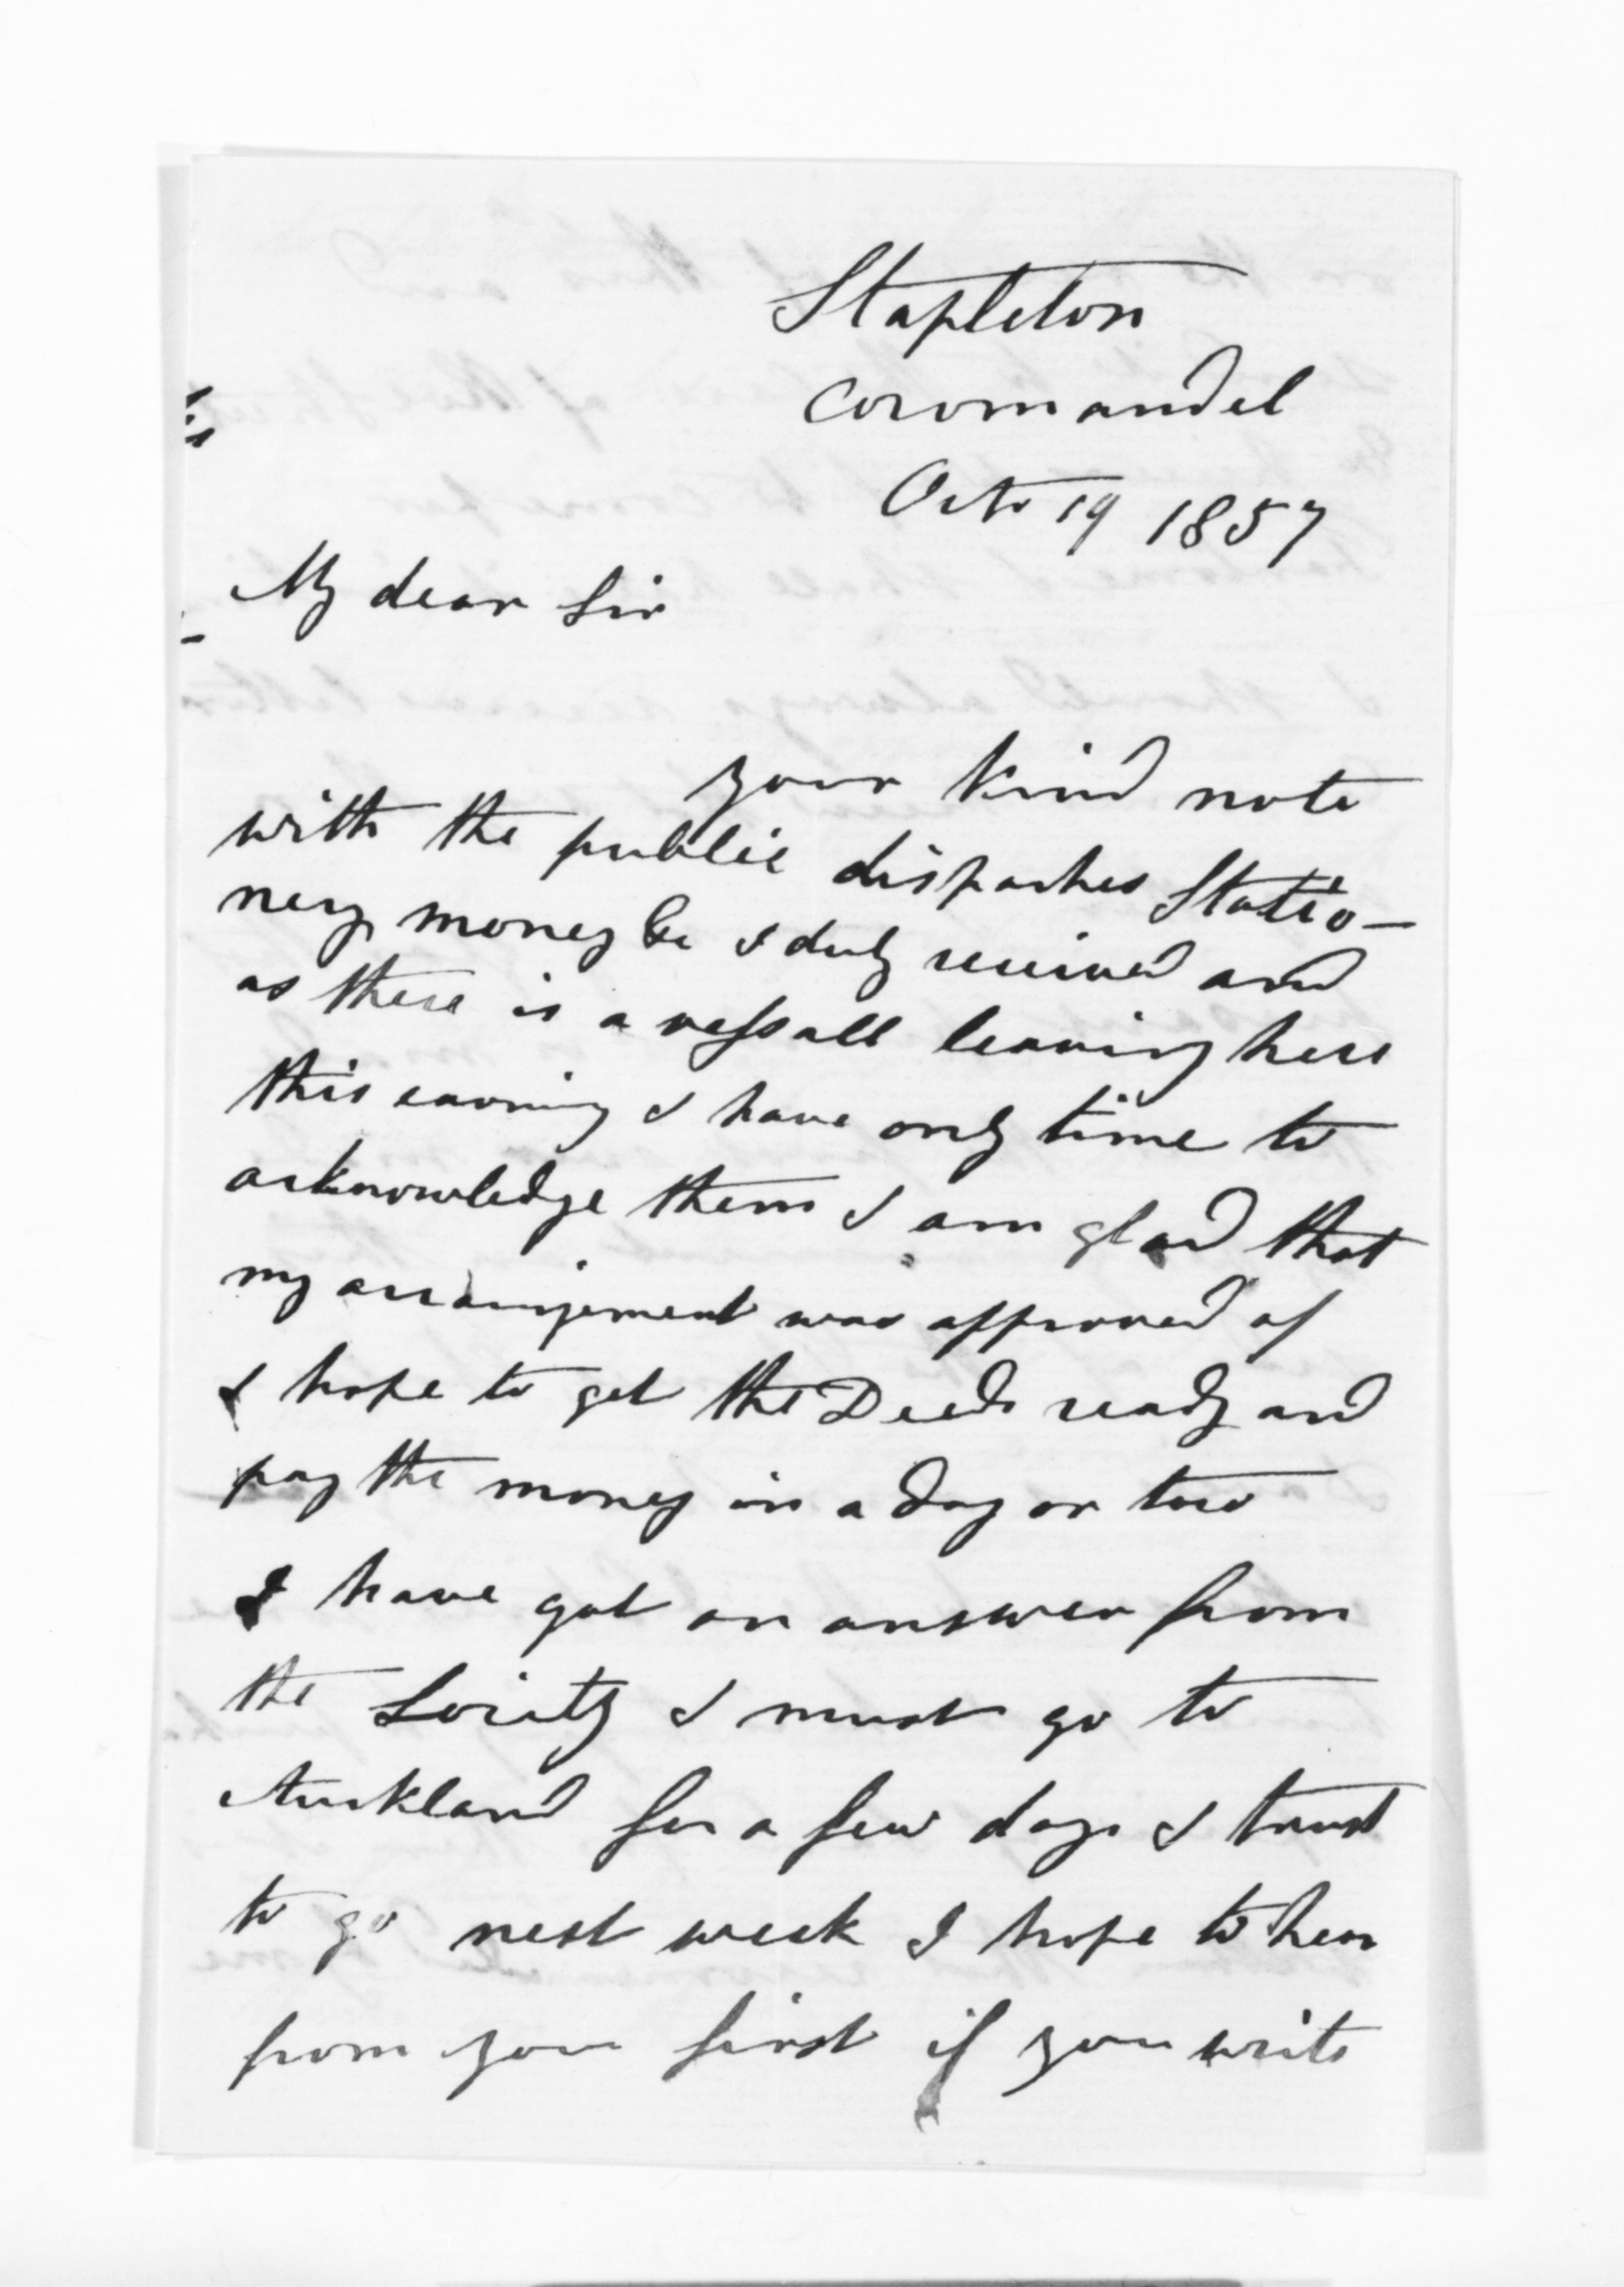 Stapleton
Coromandel
Octr 19 1857
My dear Sir
your kind note
with the public dispaches Statio-
nery money &c I duly received and
as there is a vessall leaving here
this eavning I have only time to
acknowledge them I am glad that
my arrangement was approved of
I hope to get the Deeds ready and
pay the money in a day or two
I have got an answer from
the Society I must go to
Auckland for a few days I trust
to go next week I hope to hear
from you first if you write